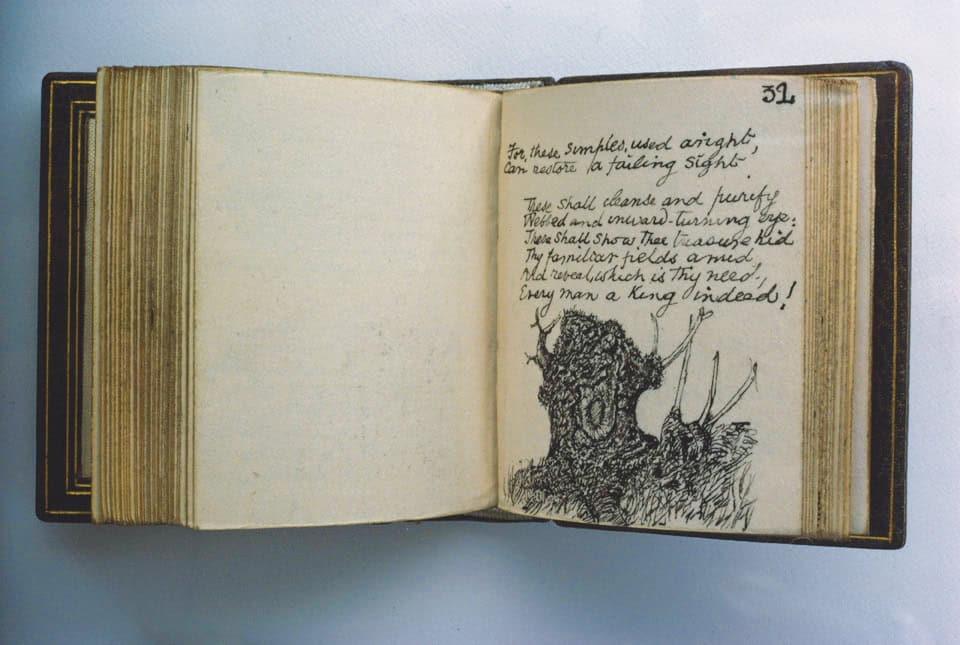 32
For, these simples, used aright,
Can restore a failing sight.
These shall cleanse and purify
Webbed and inward-turning eye;
These shall show thee treasure hid
Thy familiar fields amid,
And reveal, which is thy need,
Every man a King indeed!